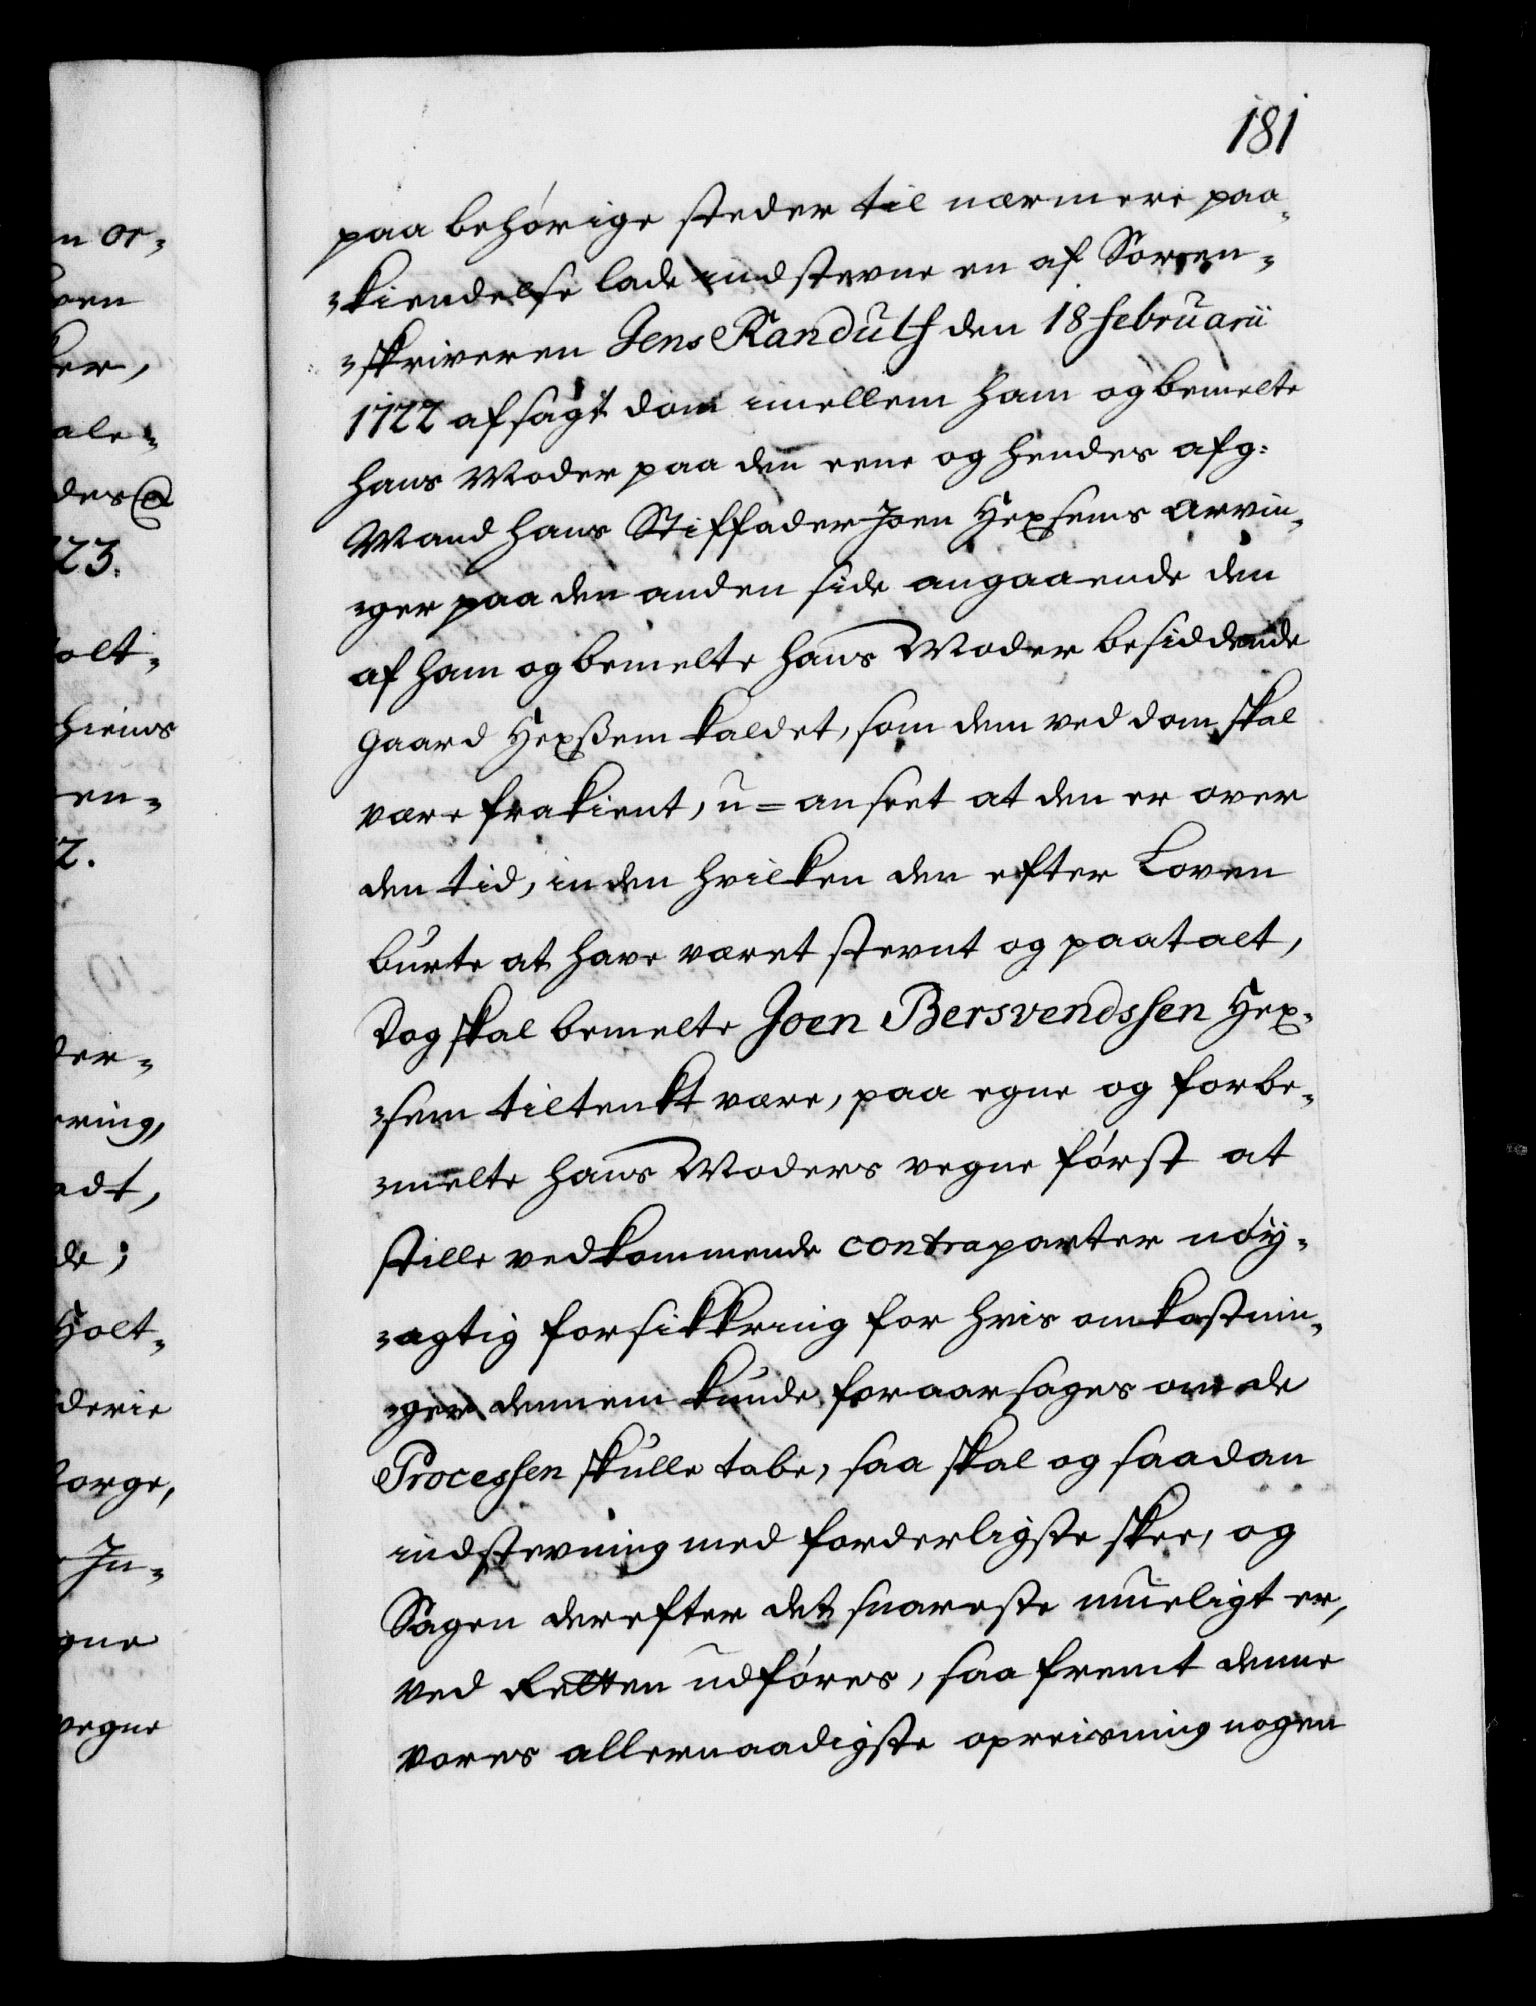 181
paa behörige steder til nærmere paa-
-kiendelse lade indstevne en af Soren-
-skriveren Jens Randulf den 18 februarii
1722 afsagt dom imellem ham og bemelte
hans Moder paa den eene og hendes afg:
Mand hans Stiffader Joen Hexsems Arvin-
-ger paa den anden side angaaende den
af ham og bemelte hans Moder besiddende
gaard Hexßem kaldet, som dem ved dom skal
være frakient, u=anseet at den er over
den tid, inden hvilken den efter Loven
burte at have været stevnt og paatalt,
Dog skal bemelte Joen Bersvendssen Hex-
-sem tiltenkt være, paa egne og forbe-
-melte hans Moders vegne först at
stille vedkommende contraparter nöy-
-agtig forsikkring for hvis omkostnin-
-ger dennem kunde foraarsages om de
Processen skulle tabe, saa skal og saadan
indstevning med forderligste skee, og
Sagen derefter det snareste mueligt er,
ved Retten udföres, saa fremt denne
vores allernaadigste opreisning nogen
n or-
oen
er,
ale-
des @
23.
olt-
hiems
en-
2.
der-
ring,
edt,
de;
Holt-
derie
orge,
In-
gne
vegne